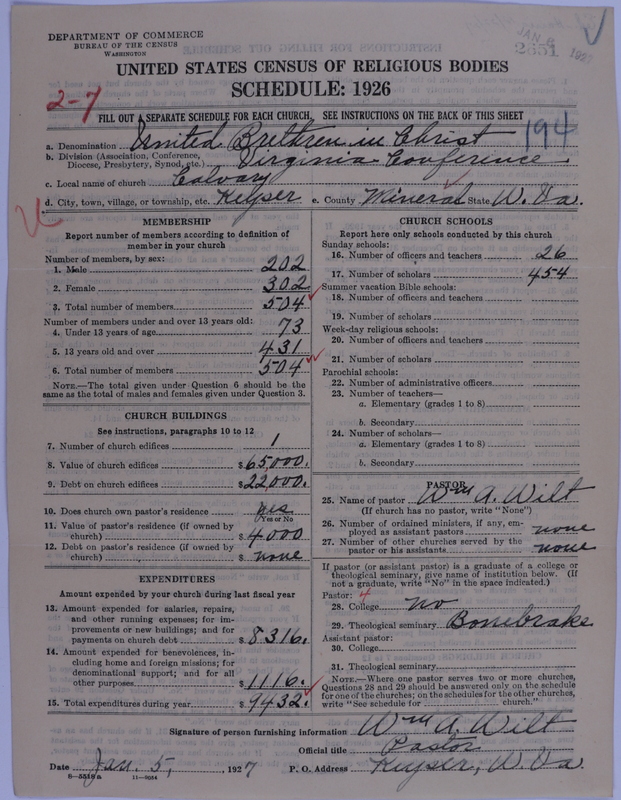 DEPARTMENT OF COMMERCE
BUREAU OF THE CENSUS
WASHINGTON
JAN 6 1927
2651
UNITED STATES CENSUS OF RELIGIOUS BODIES
SCHEDULE: 1926
2-7
FILL OUT A SEPARATE SCHEDULE FOR EACH CHURCH. SEE INSTRUCTIONS ON THE BACK OF THIS SHEET
194
a. Denomination United Brethren in Christ
b. Division (Association, Conference, Diocese, Presbytery, Synod, etc.) Virginia Conference
c. Local name of church Calvary
d. City, town, village, or township, etc. Keyser e. County Mineral State W. Va.
MEMBERSHIP
Report number of members according to definition of member in your church
Number of members, by sex:
1. Male 202
2. Female 302
3. Total number of members 504
Number of members under and over 13 years old:
4. Under 13 years of age 73
5. 13 years old and over 431
6. Total number of members 504
NOTE.—The total given under Question 6 should be the same as the total of males and females given under Question 3.
CHURCH BUILDINGS
See instructions, paragraphs 10 to 12
7. Number of church edifices 1
8. Value of church edifices $65000.
9. Debt on church edifices $22,000.
10. Does church own pastor's residence yes
(Yes or No)
11. Value of pastor's residence (if owned by church) $4000
12. Debt on pastor's residence (if owned by church) $ none
EXPENDITURES
Amount expended by your church during last fiscal year
13. Amount expended for salaries, repairs, and other running expenses; for improvements or new buildings; and for payments on church debt $8316.
14. Amount expended for benevolences, including home and foreign missions; for denominational support; and for all other purposes $1116.
15. Total expenditures during year $9432.
CHURCH SCHOOLS
Report here only schools conducted by this church
Sunday schools:
16. Number of officers and teachers 26
17. Number of scholars 454
Summer vacation Bible schools:
18. Number of officers and teachers
19. Number of scholars
Week-day religious schools:
20. Number of officers and teachers
21. Number of scholars
Parochial schools:
22. Number of administrative officers
23. Number of teachers—
a. Elementary (grades 1 to 8)
b. Secondary
24. Number of scholars—
a. Elementary (grades 1 to 8)
b. Secondary
PASTOR
25. Name of pastor Wm A. Wilt
(If church has no pastor, write "None")
26. Number of ordained ministers, if any, employed as assistant pastors none
27. Number of other churches served by the pastor or his assistants none
If pastor (or assistant pastor) is a graduate of a college or theological seminary, give name of institution below. (If not a graduate, write "No" in the space indicated.)
Pastor: 4
28. College no
29. Theological seminary Bonebrake
Assistant pastor:
30. College
31. Theological seminary
NOTE.—Where one pastor serves two or more churches, Questions 28 and 29 should be answered only on the schedule for one of the churches; on the schedules for the other churches, write "See schedule for church."
Signature of person furnishing information Wm A. Wilt
Official title Pastor
Date Jan. 5, 1927 P. O. Address Keyser, W. Va.
8—5518a 11—9064